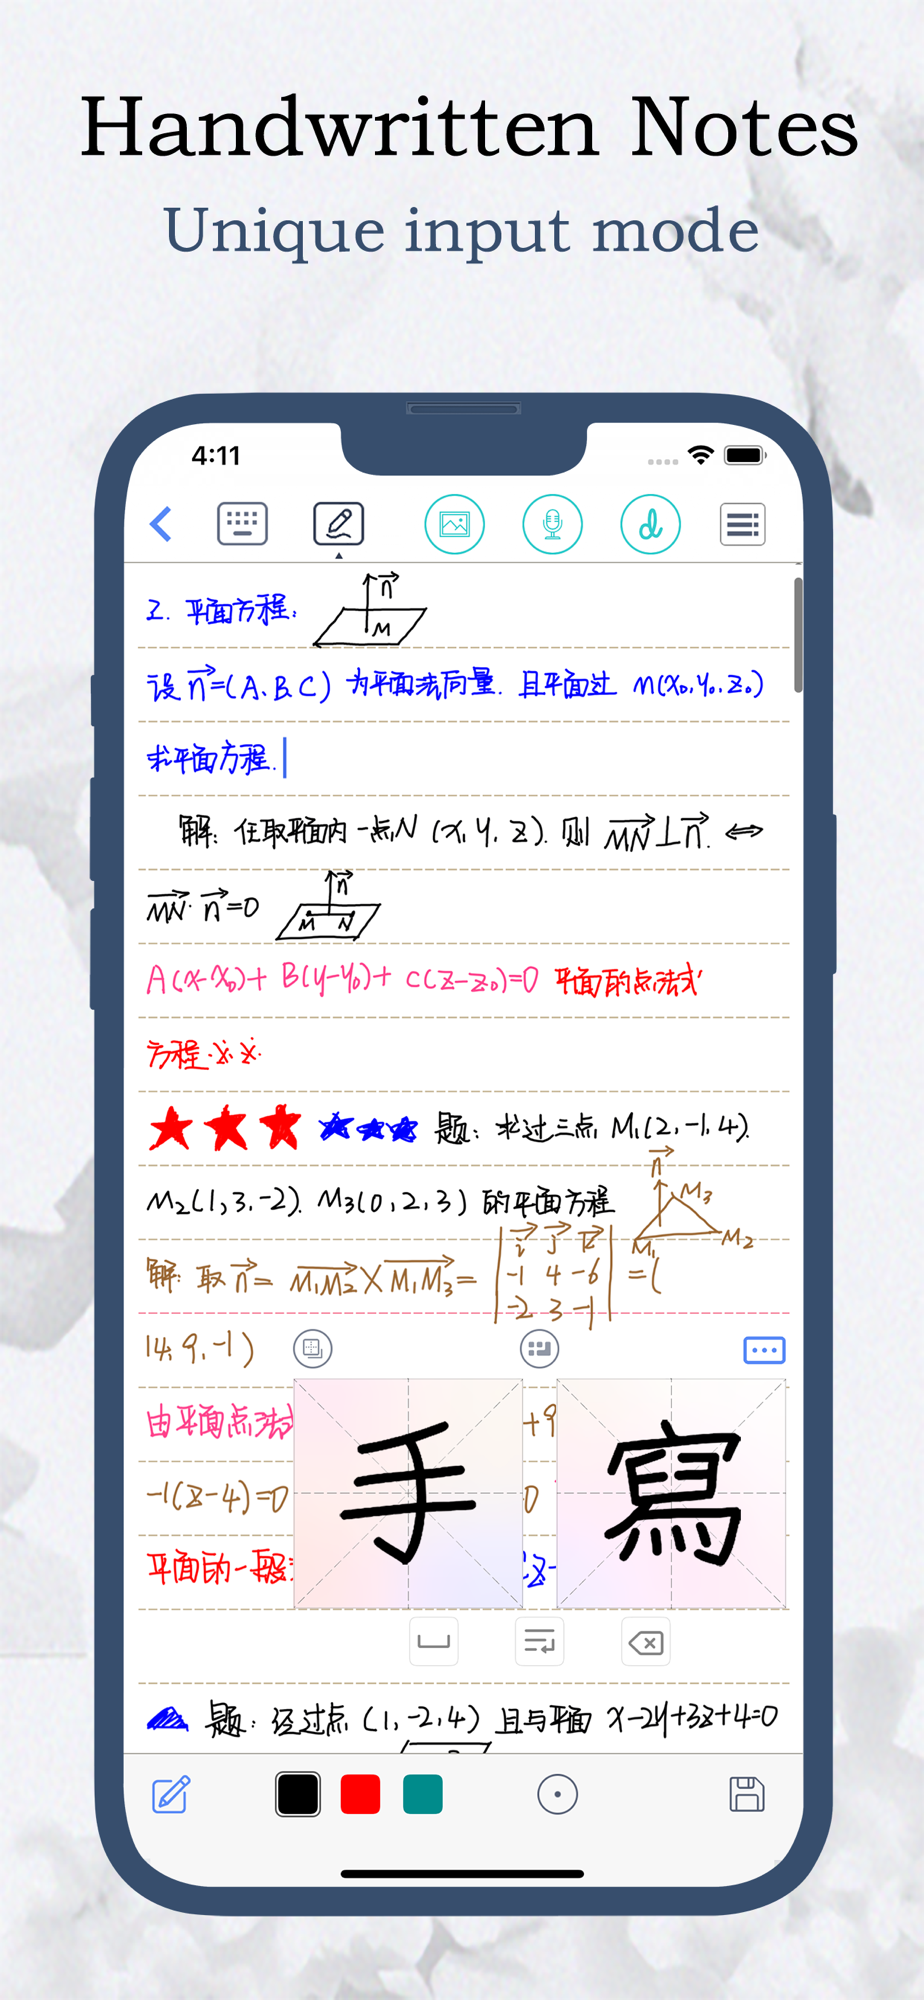 Handwritten Notes
Unique input mode
4:11
2. 平面方程: n⃗ M
设 n⃗=(A、B、C) 为平面法向量. 且平面过 M(x₀, y₀, z₀)
求平面方程.
解: 任取平面内一点N (x, y, z). 则 MN⃗⊥n⃗. ⇔
MN⃗·n⃗=0 n⃗ M N
A(x-x₀)+ B(y-y₀)+ C(z-z₀)=0 平面的点法式
方程.
★★★ ★★★ 题: 求过三点 M₁(2,-1,4).
M₂(1,3,-2). M₃(0,2,3) 的平面方程 n⃗ M₁ M₃ M₂
解: 取 n⃗= M₁M₂⃗×M₁M₃⃗= | i⃗ j⃗ k⃗ | =(
-1 4 -6
-2 3 -1
14, 9, -1)
由平面点法式 +9
-1(z-4)=0 0
平面的一般 z-
手 寫
题: 经过点 (1,-2,4) 且与平面 x-2y+3z+4=0